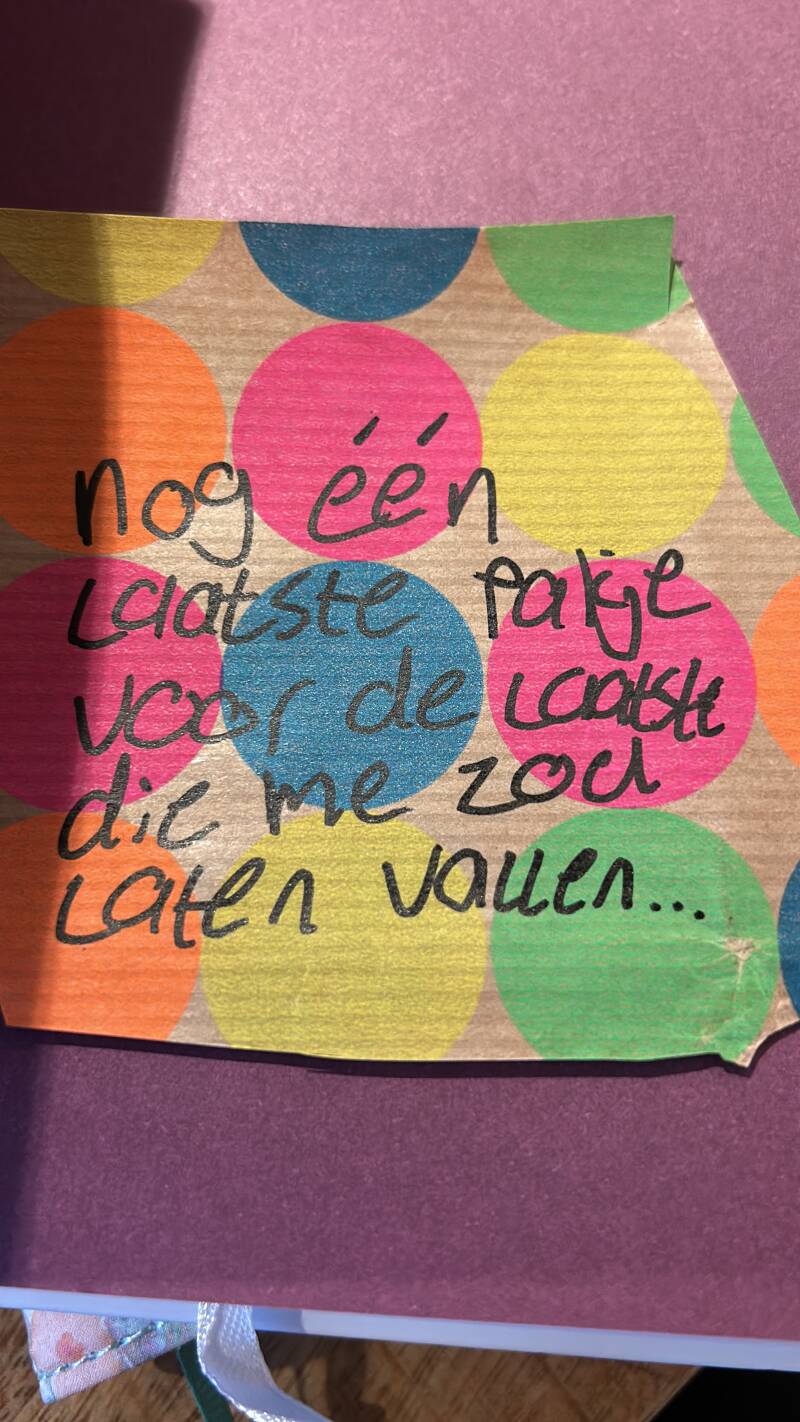 nog één
laatste pakje
voor de laatste
die me zou
laten vallen...